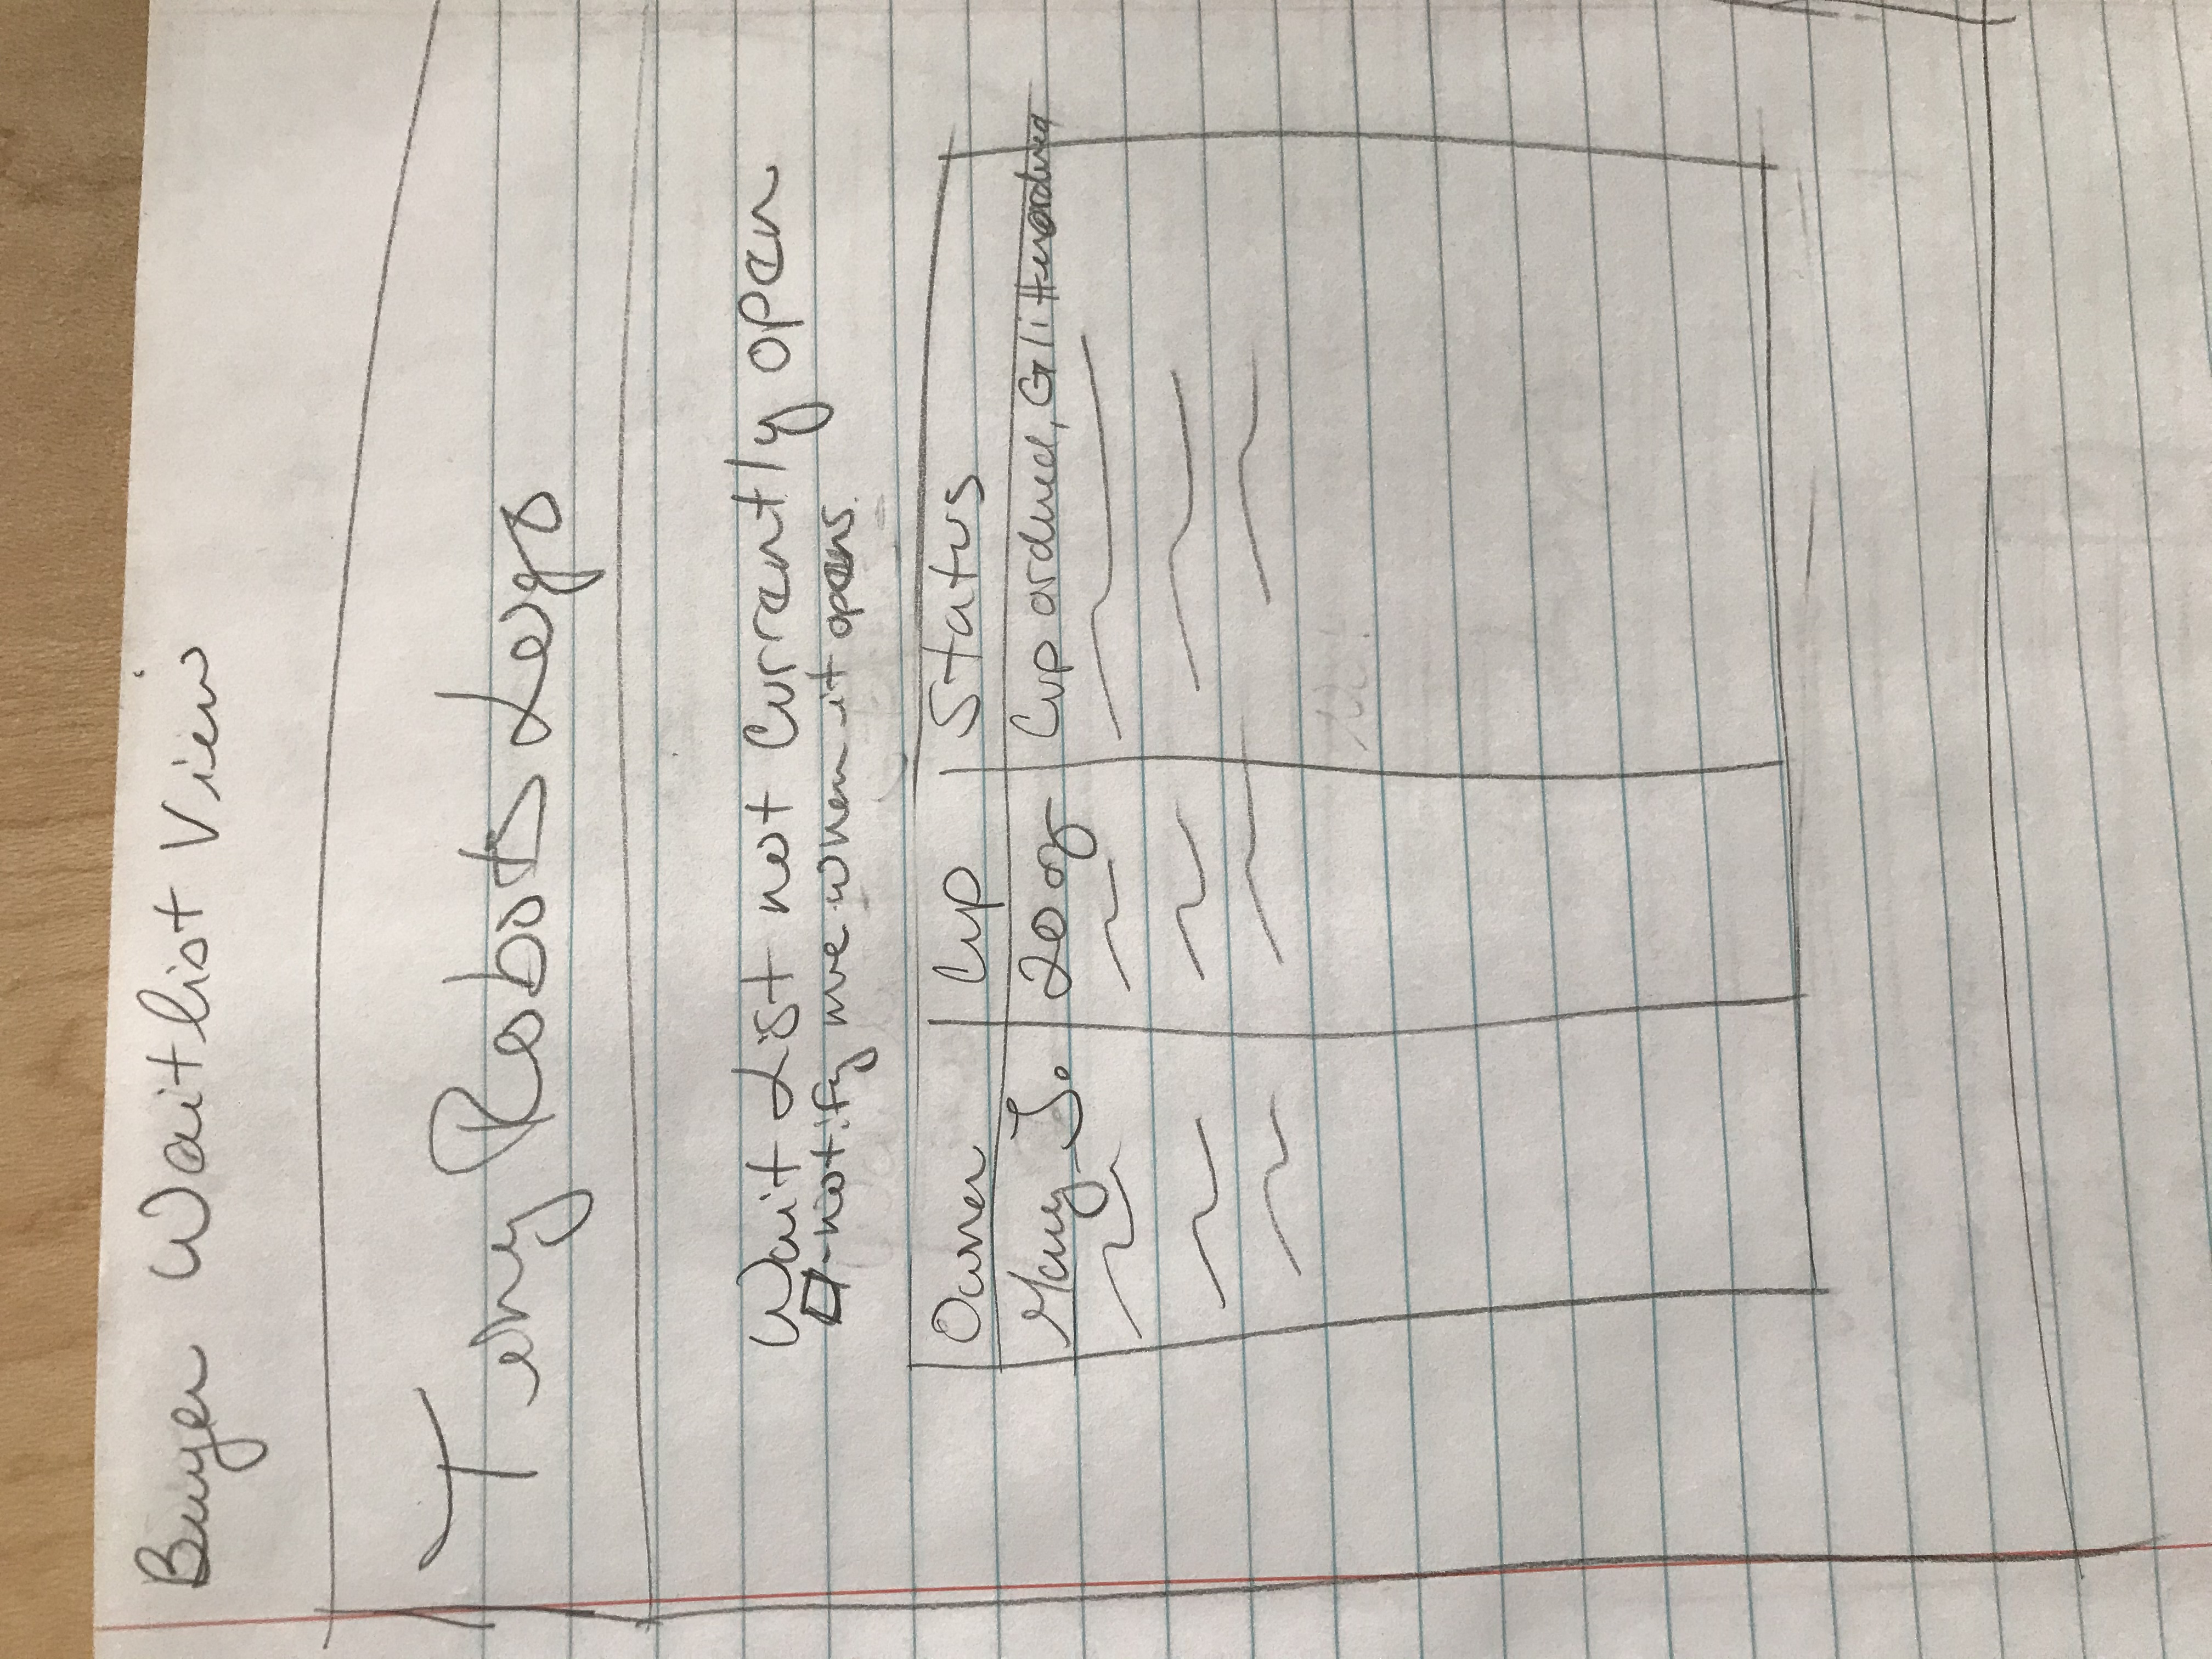 Buyer Waitlist View
Tiny Robots Logo
Wait List not currently open
- notify me when it opens.
Owner Cup Status
Mary J. 20 oz Cup ordered, Glitter ordered